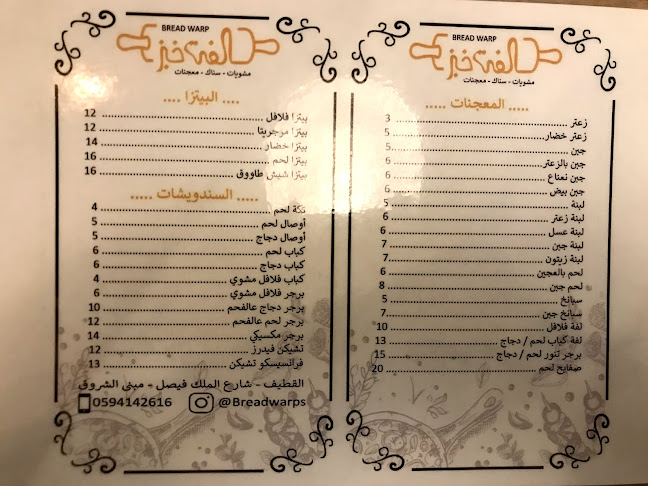 BREAD WARP
لفة خبز
مشويات - سناك - معجنات
..... المعجنات .....
زعتر 3
زعتر خضار 5
جبن 5
جبن بالزعتر 6
جبن نعناع 6
جبن بيض 6
لبنة 5
لبنة زعتر 6
لبنة عسل 6
لبنة جبن 7
لبنة زيتون 7
لحم بالعجين 6
لحم جبن 8
سبانخ 5
سبانخ جبن 7
لفة فلافل 10
لفة كباب لحم / دجاج 13
برجر تنور لحم / دجاج 15
صفايح لحم 20
BREAD WARP
لفة خبز
مشويات - سناك - معجنات
.... البيتزا ....
بيتزا فلافل 12
بيتزا مرجريتا 12
بيتزا خضار 14
بيتزا لحم 16
بيتزا شيش طاووق 16
..... السندويشات .....
تكة لحم 4
أوصال لحم 5
أوصال دجاج 5
كباب لحم 6
كباب دجاج 6
كباب فلافل مشوي 4
برجر فلافل مشوي 6
برجر دجاج عالفحم 10
برجر لحم عالفحم 12
برجر مكسيكي 14
تشيكن فيدرز 12
فرانسيسكو تشيكن 13
القطيف - شارع الملك فيصل - مبنى الشروق
0594142616 @Breadwarps